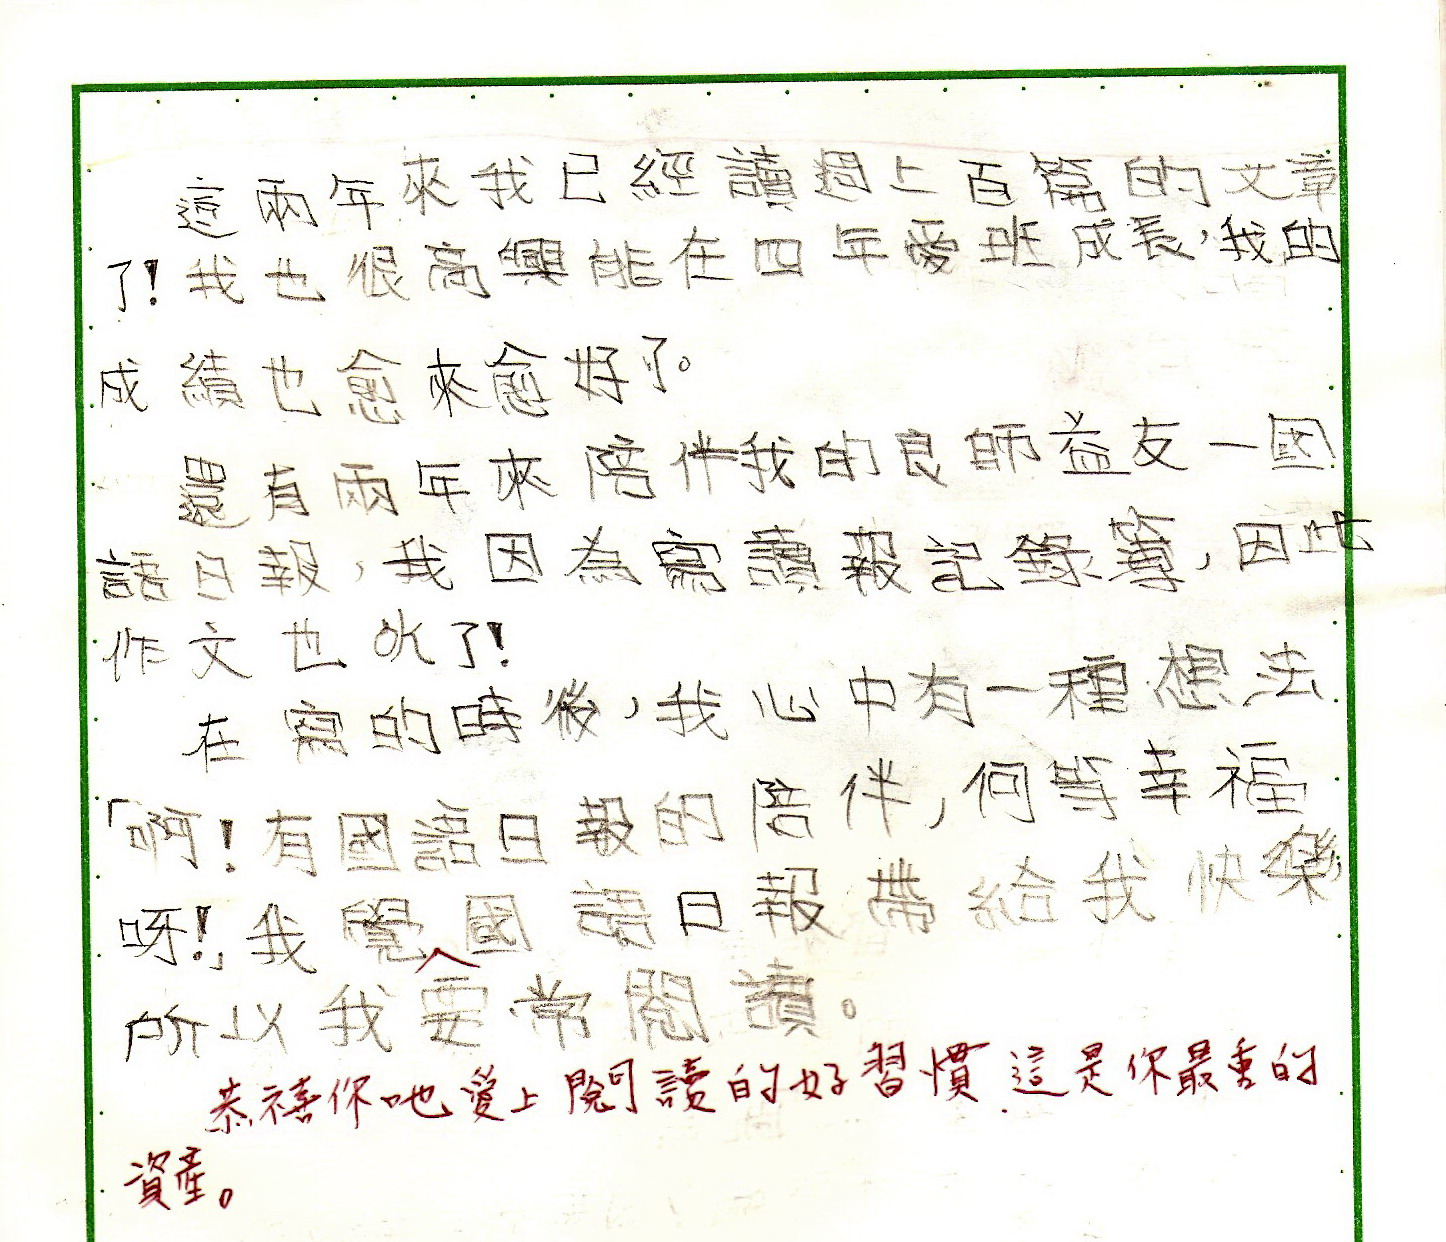 這兩年來我已經讀過上百篇的文章
了!我也很高興能在四年愛班成長,我的
成績也愈來愈好了。
還有兩年來陪伴我的良師益友一國
語日報,我因為寫讀報記錄簿,因此
作文也OK了!
在寫的時後,我心中有一種想法
「啊!有國語日報的陪伴,何等幸福
呀!」我覺國語日報帶給我快樂,
所以我要常閱讀。
恭禧你吔愛上閱讀的好習慣這是你最重的
資產。